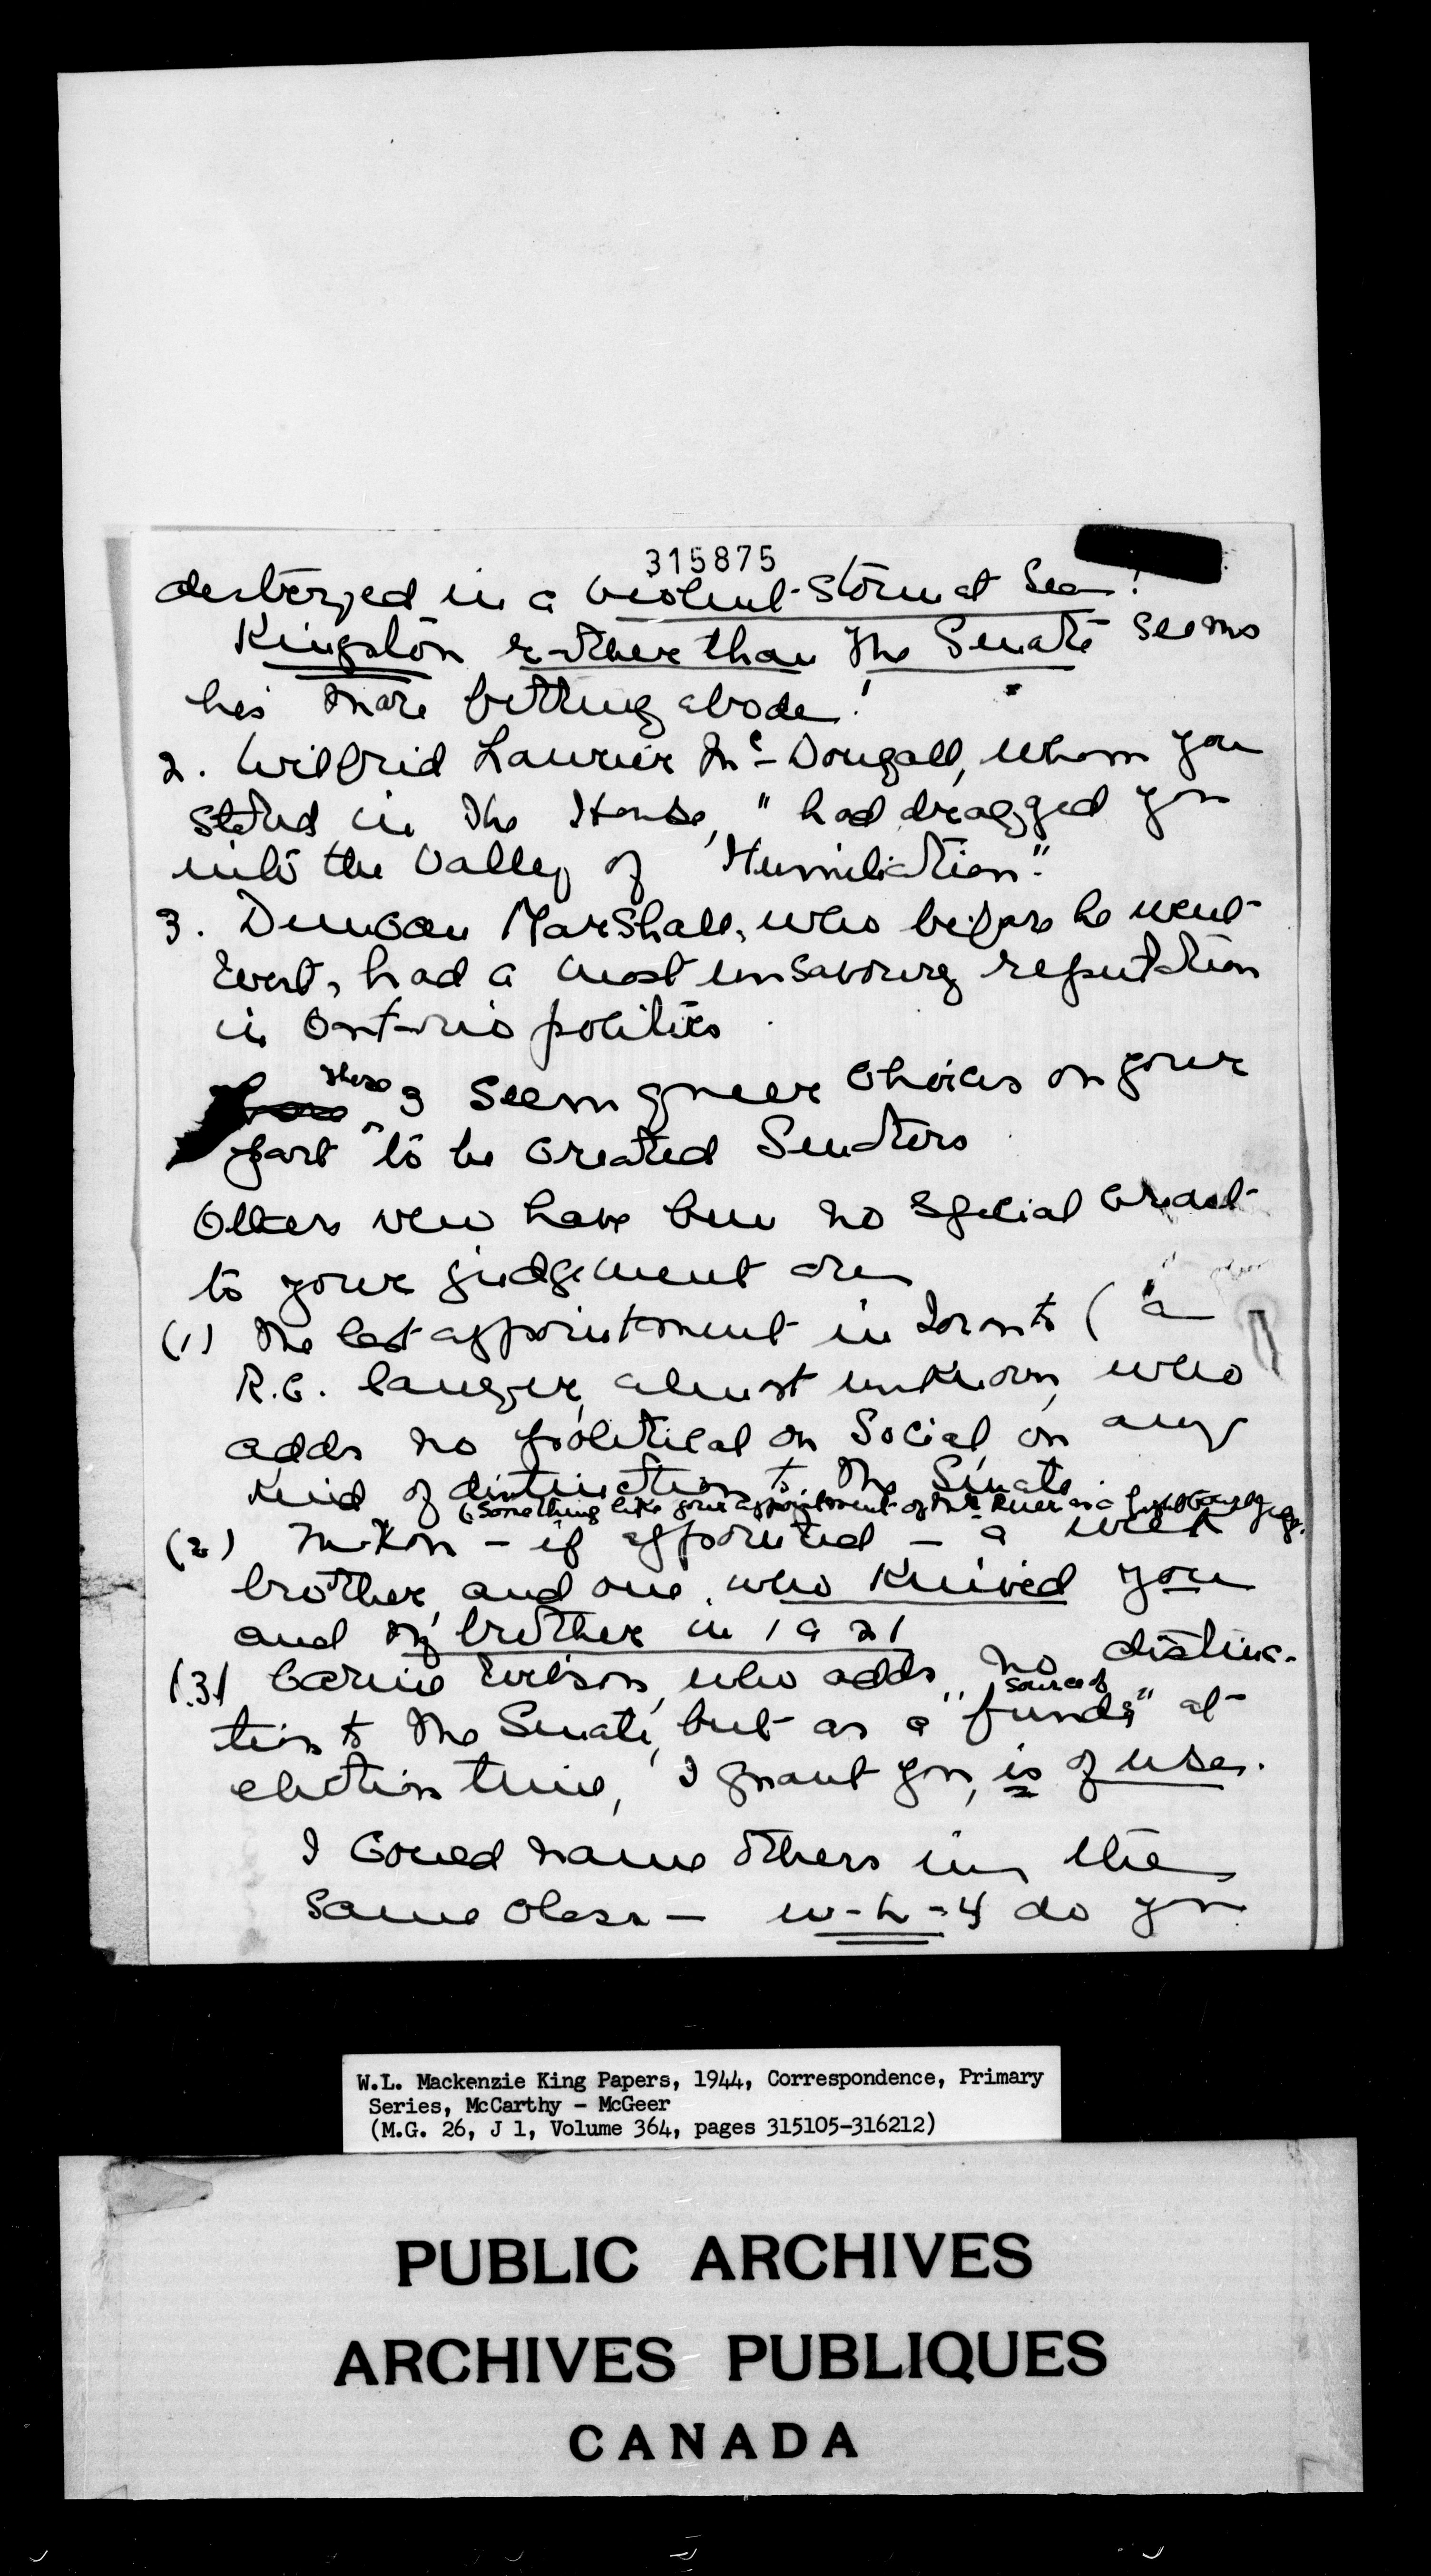 315875
destroyed in a violent storm at Sea!
Kingston rather than the Senate seems
his more fitting abode!
2. Wilfrid Laurier McDougall, whom you
stated in the House, "had dragged you
into the Valley of Humiliation."
3. Duncan Marshall, who before he went
West, had a most unsavoury reputation
in Ontario politics.
These 3 seem queer choices on your
part to be created Senators
Others who have been no special credit
to your judgement are
(1) The last appointment in Toronto (a
R.C. lawyer, almost unknown, who
adds no political or Social or any
kind of distinction to the Senate.
(Something like your appointment of Mr. as a
(2) Nixon - if appointed - a weak
brother, and one who knived you
and my brother in 1921
(3) Carine Wilson, who adds no distinc-
tion to the Senate, but as a "source of funds" at
election time, I grant you, is of use.
I could name others in the
same class — w-h-y do you
W.L. Mackenzie King Papers, 1944, Correspondence, Primary
Series, McCarthy - McGeer
(M.G. 26, J 1, Volume 364, pages 315105-316212)
PUBLIC ARCHIVES
ARCHIVES PUBLIQUES
CANADA